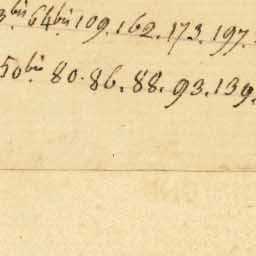 3.bis 64bis 109. 162. 173. 197.
50bis 80. 86. 88. 93. 139.